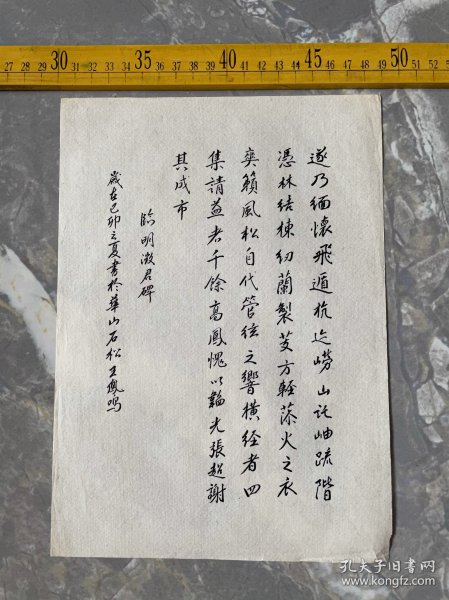 27 28 29 30 31 32 33 34 35 36 37 38 39 40 41 42 43 44 45 46 47 48 49 50 51 52
遂乃緬懷飛遁抗迹嶗山託岫疏階
憑林結棟紉蘭製芰方輕火之衣
爽籟風松自代管絃之響橫経者四
集請益者千餘高鳳愧以韜光張超謝
其成市
臨明徵君碑
歲在己卯之夏書於華山石松王鳳鳴
孔夫子旧书网
www.kongfz.com